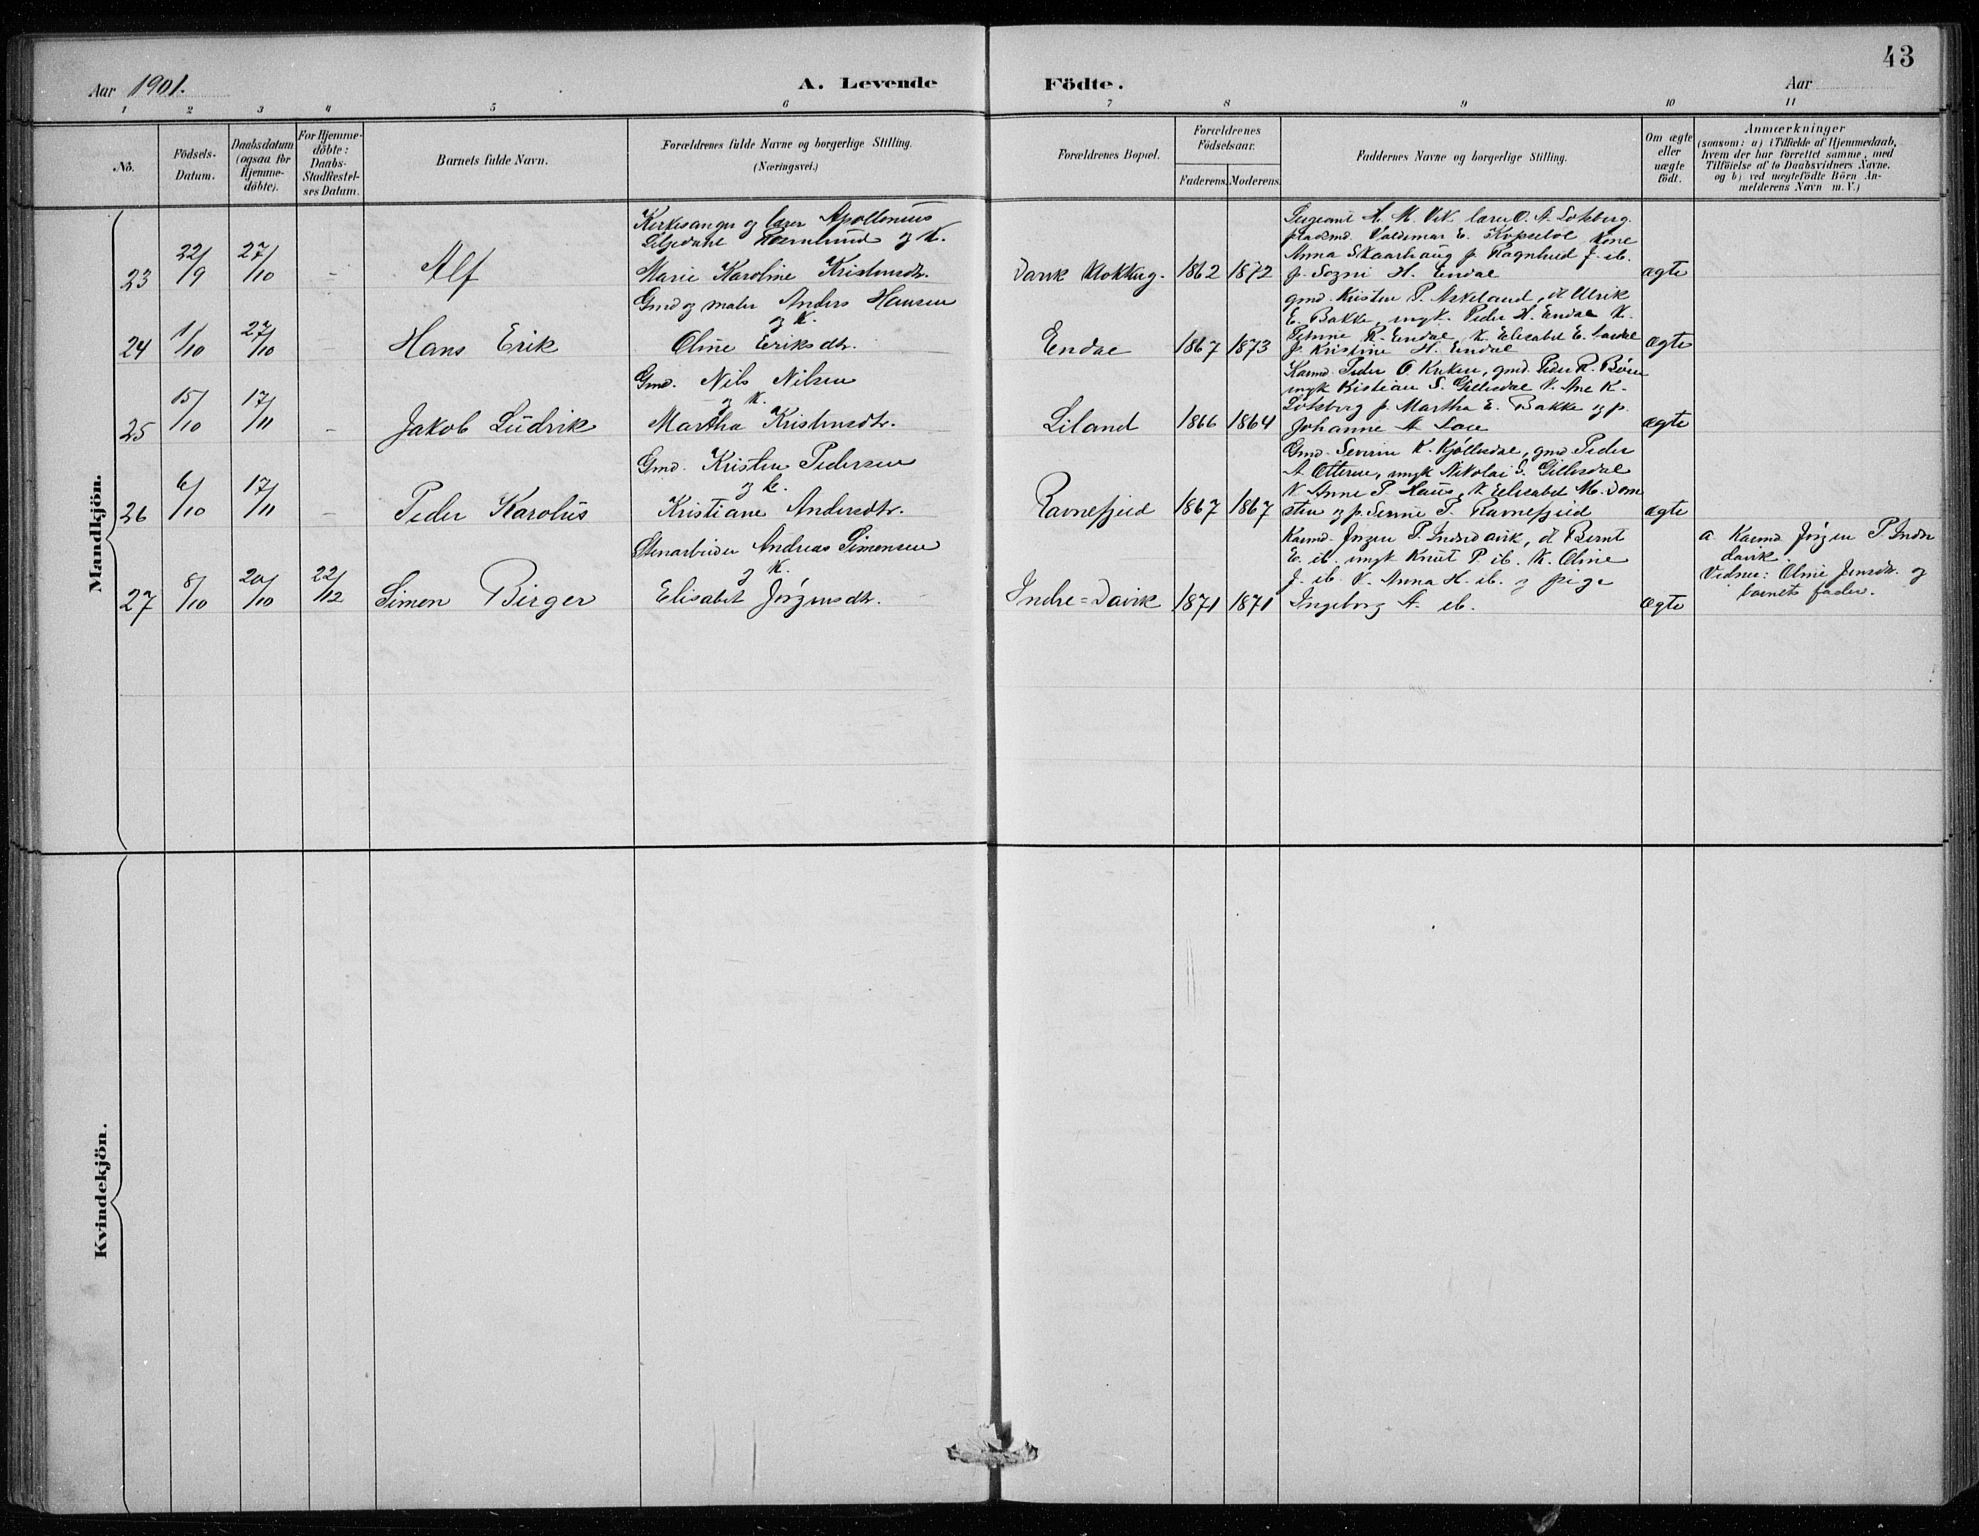 43
Aar 1901.
A. Levende
Födte.
Aar
1 2 3 4 5 6 7 8 9 10 11
No.
Födsels-
Datum.
Daabsdatum
(ogsaa for
Hjemme-
döbte).
For Hjemme-
döbte:
Daabs-
Stadfæstel-
ses Datum.
Barnets fulde Navn.
Forældrenes fulde Navne og borgerlige Stilling.
(Næringsvei.)
Forældrenes Bopæl.
Forældrenes
Födselsaar.
Faderens.
Moderens.
Faddernes Navne og borgerlige Stilling.
Om ægte
eller
uægte
født.
Anmærkninger
(saasom: a) i Tilfælde af Hjemmedaab,
hvem der har forrettet samme, med
Tilföielse af to Daabsvidners Navne.
og b) ved uægtefödte Börn An-
melderens Navn m. V.)
Mandkjön.
23 22/9 27/10 - Alf
Kirkesanger og lærer Apollonius
og K.
Marie Karoline Kristensdtr.
Davik Klokkerg. 1862 1872
Sergeant H. M. Vik lærer O. A. Lotsberg
pladsmd. Valdemar E. Kopseböe Kone
Anna Skaarhaug p. Ragnhild J. ib.
p. H. Endal
ægte
24 1/10 27/10 - Hans Erik
Gmd og maler Anders Hansen
og K.
Oline Eriksdtr.
Endal 1867 1873
gmd. Kristen P. Askeland, d. Ulrik
E. Bakke, ungk. Peder H. Endal K.
R. Endal, K. Elisabet E.
p. Kristine H. Endal
ægte
25 15/10 17/11 - Jakob Ludvik
Gmd. Nils Nilsen
og K.
Martha Kristensdtr.
Liland 1866 1864
Kaarmd. Peder O. gmd. Peder R.
ungk Kristian S. Gillesdal K. Ane K.
Lotsberg p. Martha E. Bakke og p.
Johanne A.
ægte
26 6/10 17/11 - Peder Karolus
Gmd. Kristen Pedersen
og K.
Kristiane Andersdtr.
Ravnefjeld 1867 1867
Gmd. Severin K. Kjøllesdal, gmd Peder
A. Otteren, ungk Nikolai S. Gillesdal
K Anne P. K Elisabet M. Dom
sten og p. P. Ravnefjeld
ægte
27 8/10 20/10 22/12 Simon Birger
Stenarbeider Andreas Simonsen
og K.
Elisabet Jørgensdtr.
Indre=Davik 1871 1871
Kaarmd. Jørgen P. Indredavik, d. Bernt
E. ib. ungk Knut P ib. K. Oline
J. ib K. Anna H. ib. og pige
Ingeborg A. ib.
ægte
a Kaarmd Jørgen P. Indre
davik
Vidner: Oline Jensdtr. og
barnets fader.
Kvindekjön.